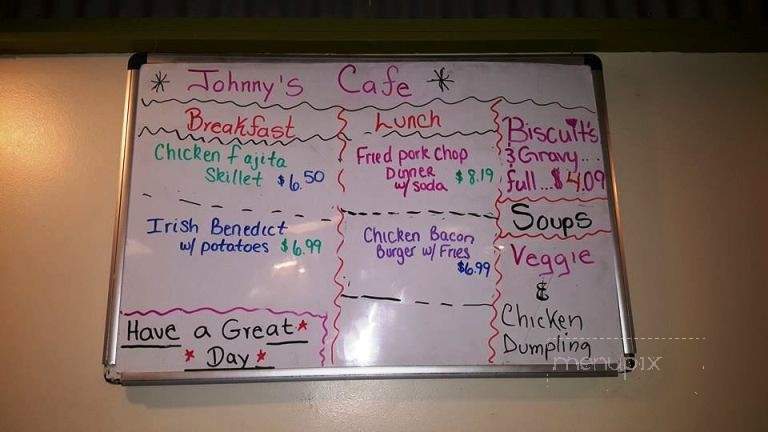 * Johnny's Cafe *
Breakfast
Chicken fajita
Skillet $6.50
Irish Benedict
w/ potatoes $6.99
Have a Great *
* Day *
Lunch
Fried pork chop
Dinner
w/ soda $8.19
Chicken Bacon
Burger w/ Fries
$6.99
Biscuit's
& Gravy...
full...$4.09
Soups
Veggie
&
Chicken
Dumpling
menupix